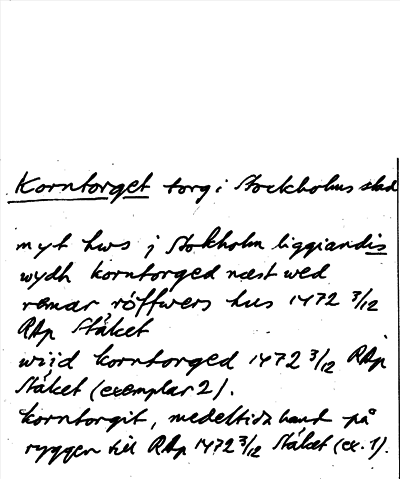 Korntorget torg i Stockholms stad
myt hws j Stokholm liggiandis
wydh korntorged næst wed
remar röffwers hus 1472 3/12
RAp Ståket
wijd korntorged 1472 3/12 RAp
Ståket (exemplar 2).
korntorgit, medeltida hand på
ryggen till RAp 1472 3/12 Ståket (ex. 1).